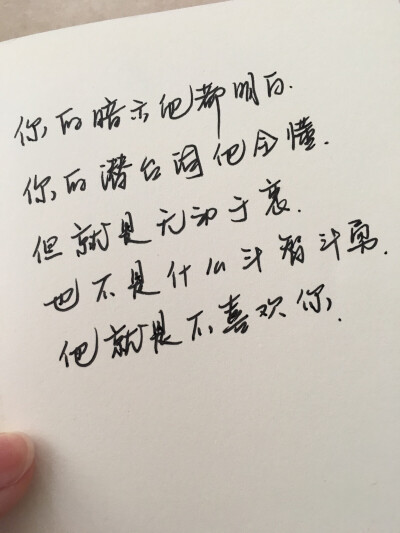 你的暗示他都明白.
你的潜台词他全懂.
但就是无动于衷.
也不是什么斗智斗勇.
他就是不喜欢你.